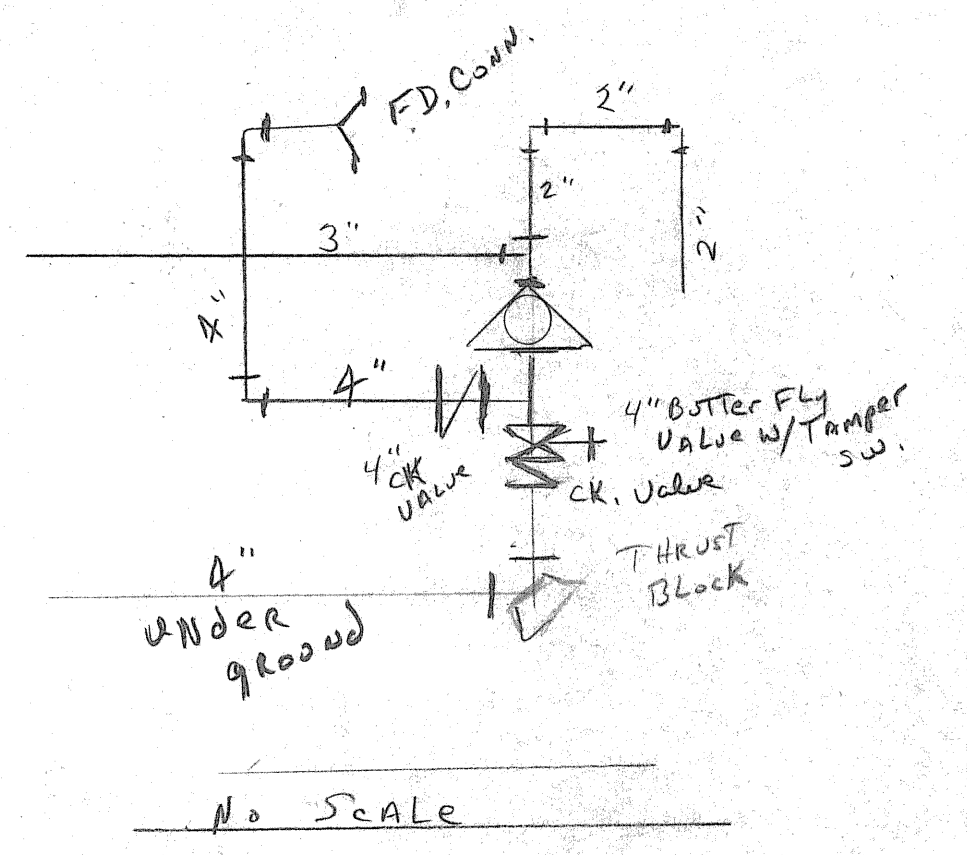 F.D. CONN.
2"
2"
2"
3"
4"
4"
4" BUTTer FLy
VALve w/ TAmper
sw.
4"
CK
VALVe
CK. Valve
THRUST
BLocK
4"
UNdeR
gROUNd
No ScALe